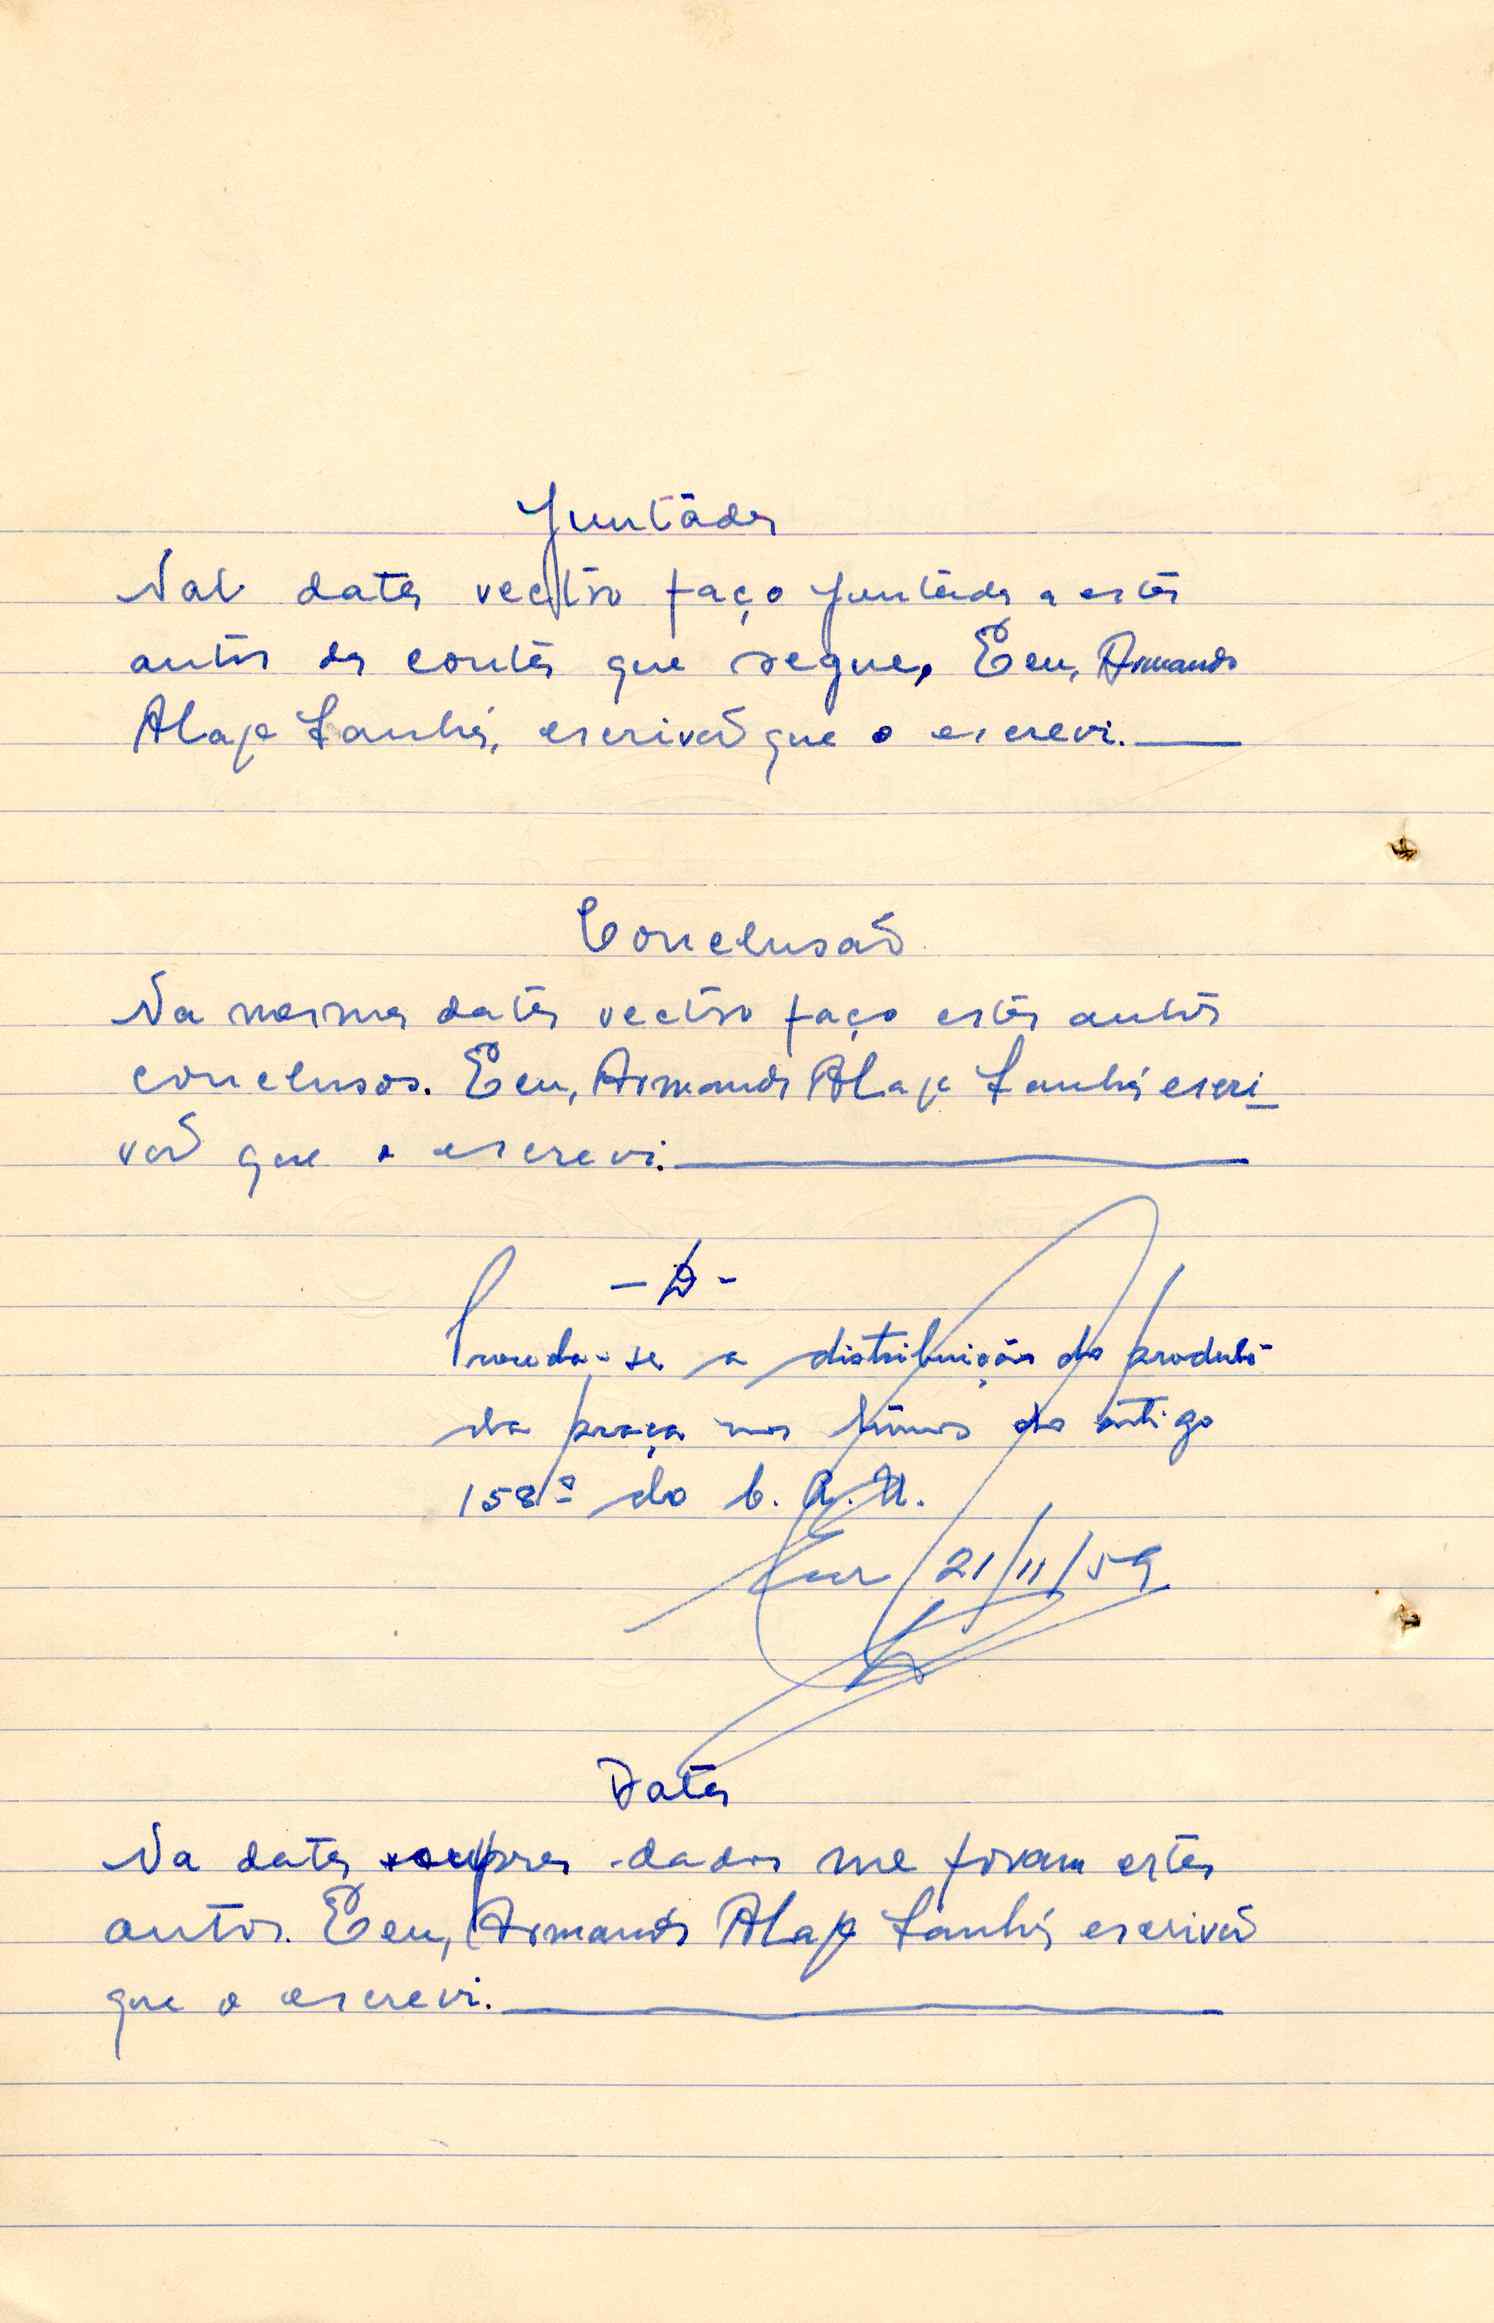 Juntada
Na data rectro faço juntada a estes
autos da conta que segue, E eu, Armando
Alage Sanhá, escrivão que o escrevi.
Conclusão
Na mesma data rectro faço estes autos
conclusos. E eu, Armando Alage Sanhá escri-
vão que o escrevi.
- D -
Proceda-se a distribuição do produto
da praça nos termos do artigo
158º do C. A. U.
Em 21/11/59
Data
Na data supra dados me foram estes
autos. E eu, Armando Alage Sanhá escrivão
que o escrevi.